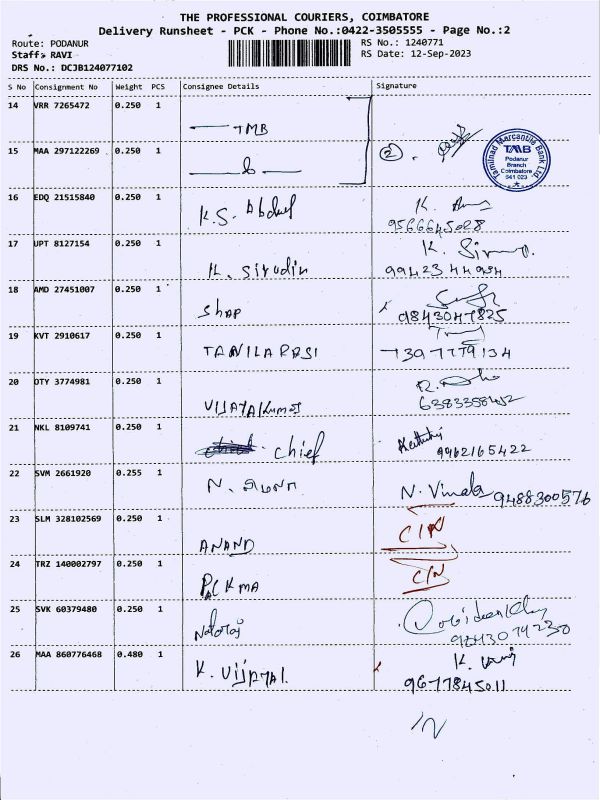 THE PROFESSIONAL COURIERS, COIMBATORE
Delivery Runsheet - PCK - Phone No.:0422-3505555 - Page No.:2
Route: PODANUR RS No.: 1240771
Staff: RAVI RS Date: 12-Sep-2023
DRS No.: DCJB124077102
S No Consignment No Weight PCS Consignee Details Signature
14 VRR 7265472 0.250 1
TMB
15 MAA 297122269 0.250 1 2
Tamilnad Mercantile Bank Ltd.
TMB
Podanur
Branch
Coimbatore
641 023
16 EDQ 21515840 0.250 1
K.S. Abdul K.
9566645028
17 UPT 8127154 0.250 1
K. Sirudin K.
99423 44984
18 AMD 27451007 0.250 1
Shop 9843047825
19 KVT 2910617 0.250 1
TAMILARASI 7397779134
20 OTY 3774981 0.250 1
VIJAYAKumar 6383358412
21 NKL 8109741 0.250 1
chief 9962165422
22 SVM 2661920 0.255 1
N. விமலா N. Vimala 9488300576
23 SLM 328102569 0.250 1
ANAND
24 TRZ 140002797 0.250 1
25 SVK 60379480 0.250 1
9843074230
26 MAA 860776468 0.480 1
K. K.
9677845011